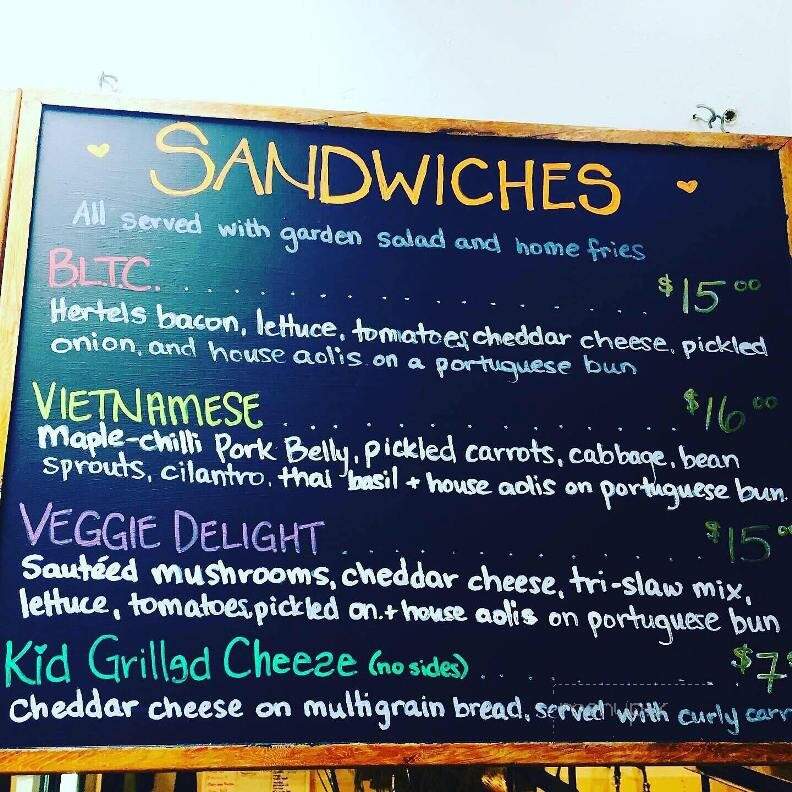 SANDWICHES
All served with garden salad and home fries
B.L.T.C. $15 00
Hertels bacon, lettuce, tomatoes, cheddar cheese, pickled
onion, and house aolis on a portuguese bun
VIETNAMESE $16 00
Maple-chilli Pork Belly, pickled carrots, cabbage, bean
sprouts, cilantro, thai basil + house aolis on portuguese bun.
VEGGIE DELIGHT $15
Sautéed mushrooms, cheddar cheese, tri-slaw mix,
lettuce, tomatoes, pickled on. + house aolis on portuguese bun
Kid Grilled Cheeze (no sides) $7
Cheddar cheese on multigrain bread, served with curly carr